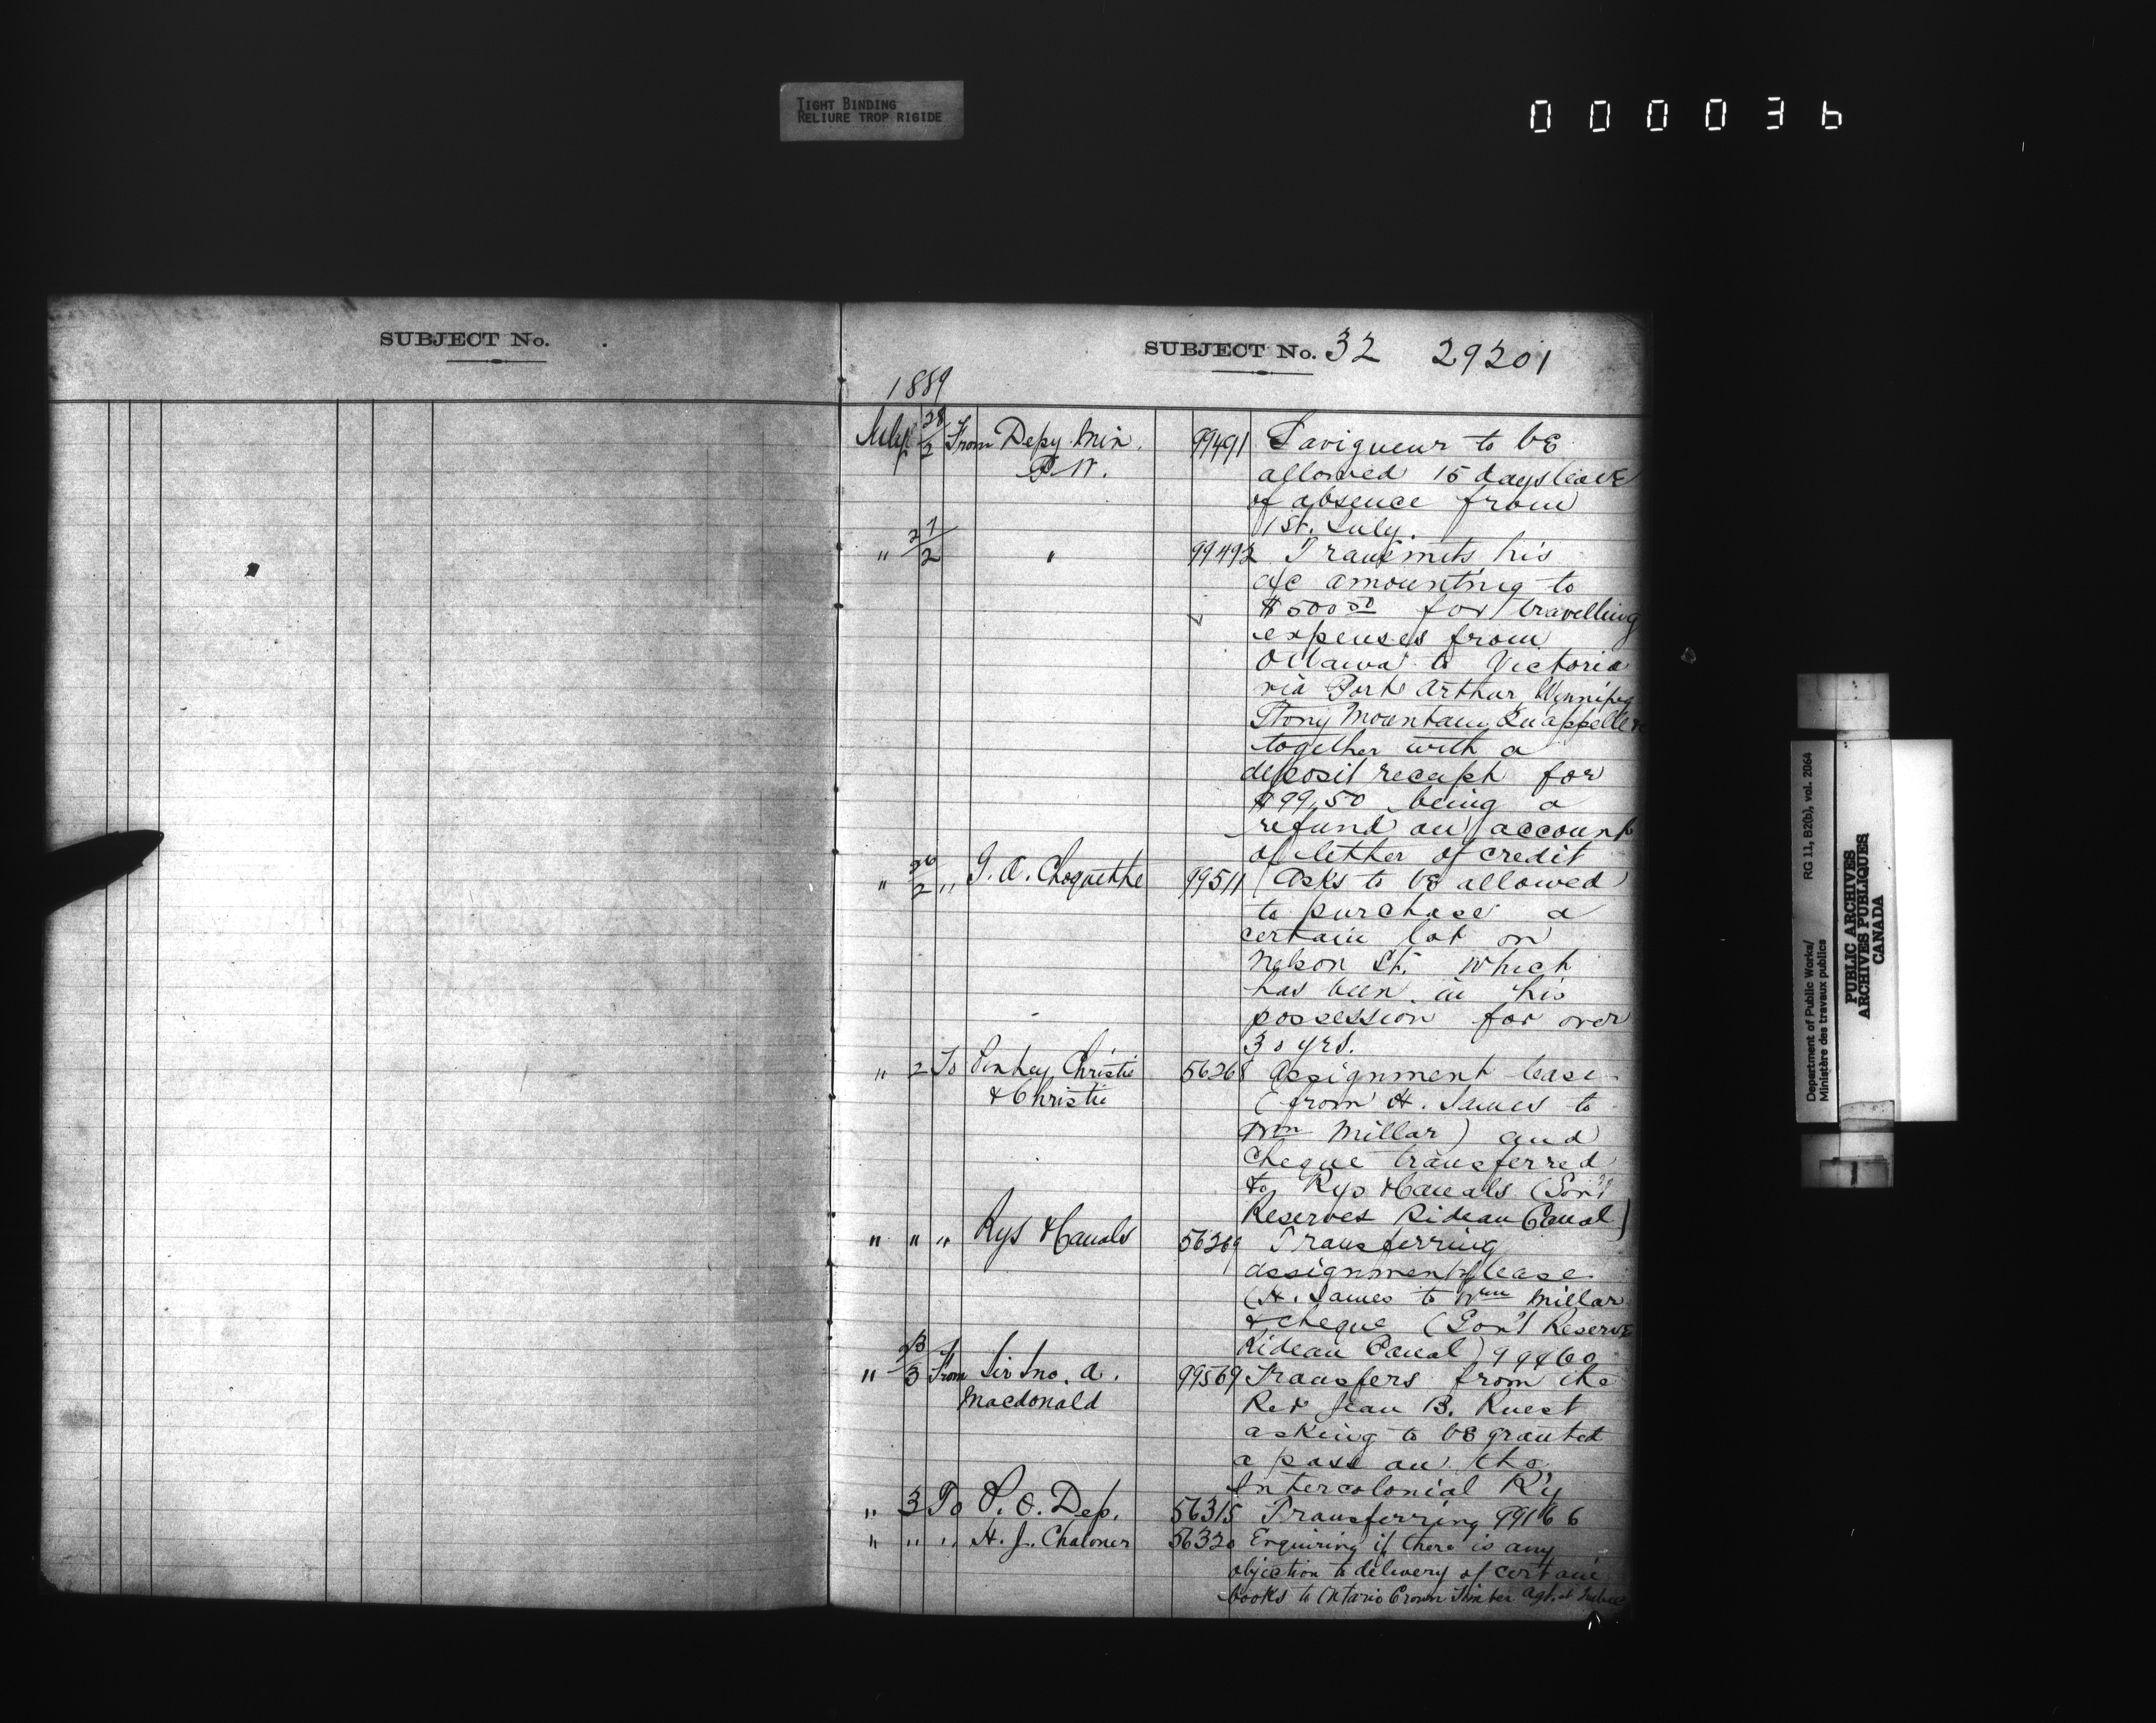 TIGHT BINDING
RELIURE TROP RIGIDE
000036
SUBJECT No.
SUBJECT No. 32 29201
1889
July 28/2 From Depy. Min. 99491 Lavigueur to be
P.W. allowed 15 days leave
of absence from
1st. July.
" 21/2 " 99492 Transmits his
a/c amounting to
$500 50 for travelling
expenses from
Ottawa to Victoria
via Port Arthur, Winnipeg
Stony Mountain, Qu'appelle
together with a
deposit receipt for
$99,50 being a
refund on account
of letter of credit
" 26/2 " J. A. Choquette 99511 Asks to be allowed
to purchase a
certain lot on
Nelson St. which
has been in his
possession for over
30 yrs.
" 2 To Pinhey, Christie 56268 Assignment lease
& Christie (from H. James to
Wm Millar) and
cheque transferred
to Rys & Canals (Gov't
Reserves Rideau Canal)
" " " Rys & Canals 56269 Transferring
assignment of lease
(H. James to Wm Millar
& cheque (Gov't Reserve
Rideau Canal) 99460
" 3 From Sir Jno. A. 99569 Transfers from the
Macdonald Rev Jean B. Ruest
asking to be granted
a pass on the
Intercolonial R'y
" 3 To P. O. Dep. 56315 Transferring 99166
" " " H. J. Chaloner 56320 Enquiring if there is any
objection to delivery of certain
books to Ontario Crown Timber Agt. at Quebec
Department of Public Works/ RG 11, B2(b), vol. 2064
Ministère des travaux publics
PUBLIC ARCHIVES
ARCHIVES PUBLIQUES
CANADA